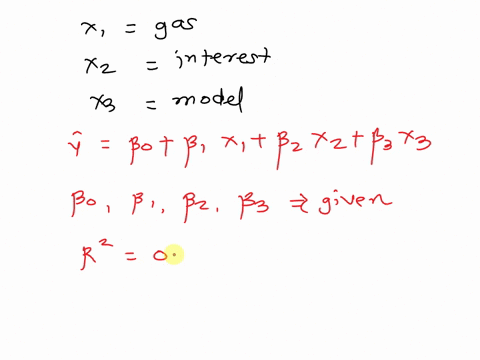 x₁ = gas
x₂ = interest
x₃ = model
ŷ = β₀ + β₁ x₁ + β₂ x₂ + β₃ x₃
β₀, β₁, β₂, β₃ ⇒ given
R² = 0.